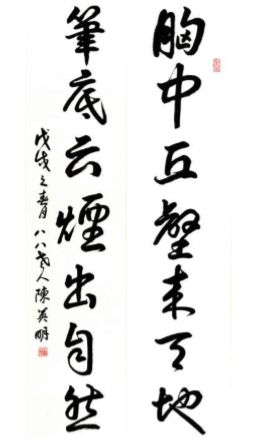 胸中丘壑来天地
筆底云煙出自然
戊戌之春月八八老人陳英明